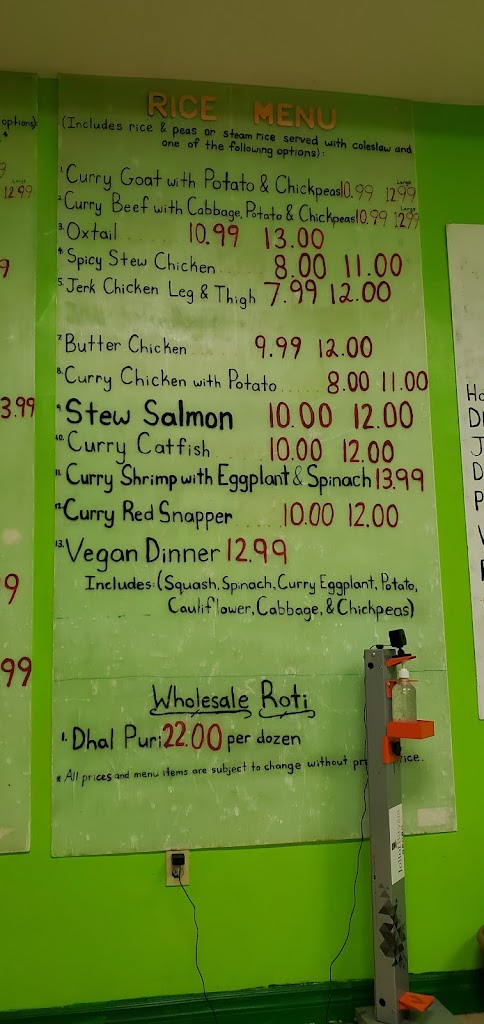 RICE MENU
(Includes rice & peas or steam rice served with coleslaw and
one of the following options):
1. Curry Goat with Potato & Chickpeas 10.99 Large 12.99
2. Curry Beef with Cabbage, Potato & Chickpeas 10.99 Large 12.99
3. Oxtail 10.99 13.00
4. Spicy Stew Chicken 8.00 11.00
5. Jerk Chicken Leg & Thigh 7.99 12.00
7. Butter Chicken 9.99 12.00
8. Curry Chicken with Potato 8.00 11.00
9. Stew Salmon 10.00 12.00
10. Curry Catfish 10.00 12.00
11. Curry Shrimp with Eggplant & Spinach 13.99
12. Curry Red Snapper 10.00 12.00
13. Vegan Dinner 12.99
Includes: (Squash, Spinach, Curry Eggplant, Potato,
Cauliflower, Cabbage, & Chickpeas)
Wholesale Roti
1. Dhal Puri 22.00 per dozen
* All prices and menu items are subject to change without
options)
Large
12.99
9
3.99
9
99